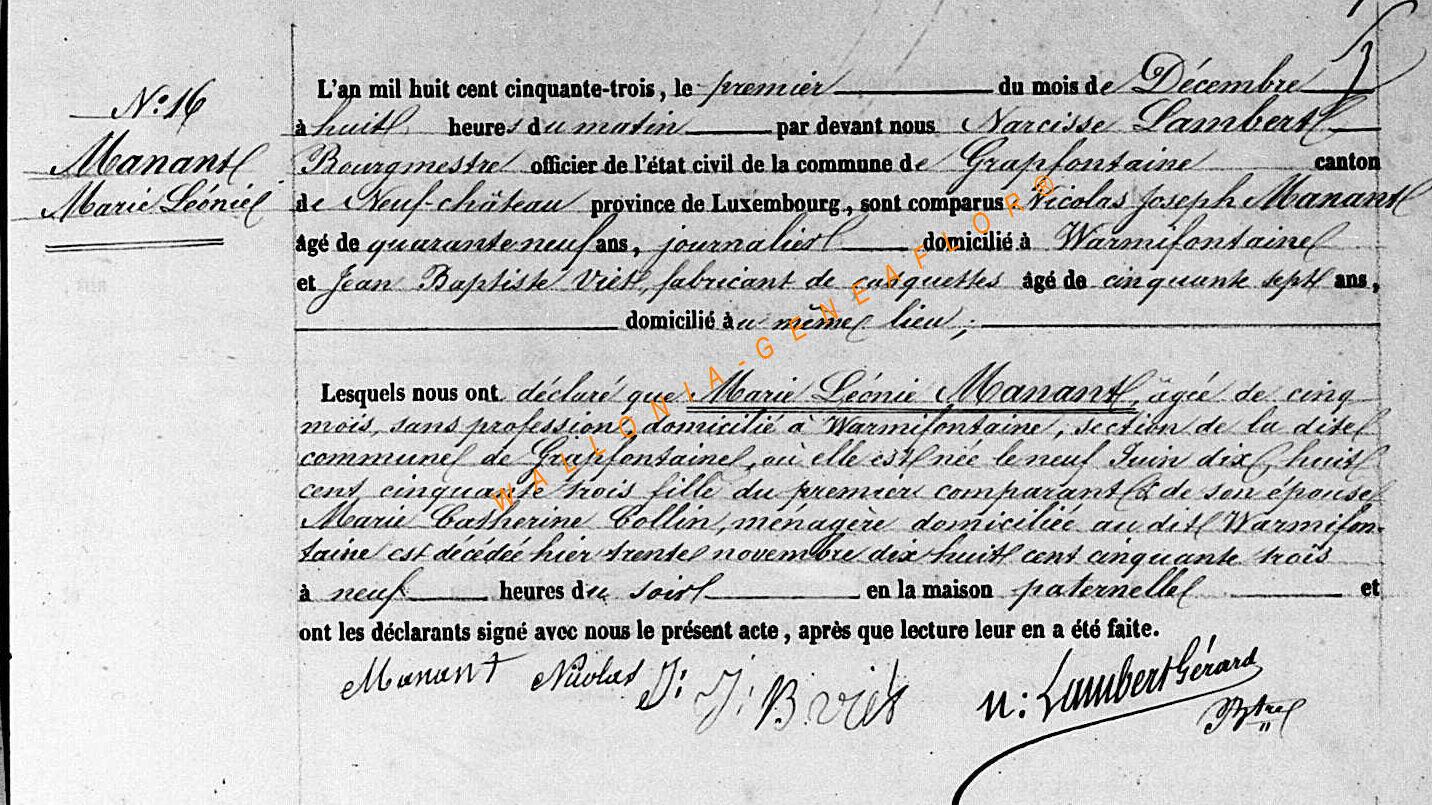 N.º 16
Manant
Marie Léonie
L'an mil huit cent cinquante-trois, le premier du mois de Décembre
à huit heures du matin par devant nous Narcisse Lambert
Bourgmestre officier de l'état civil de la commune de Grapfontaine canton
de Neuf-château province de Luxembourg, sont comparus Nicolas Joseph Manant
âgé de quarante neuf ans, journalier domicilié à Warmifontaine
et Jean Baptiste Viet, fabricant de casquettes âgé de cinquante sept ans,
domicilié au même lieu;
Lesquels nous ont déclaré que Marie Léonie Manant, âgée de cinq
mois, sans profession, domicilié à Warmifontaine, section de la dite
commune de Grapfontaine, où elle est née le neuf Juin dix huit
cent cinquante trois fille du premier comparant & de son épouse
Marie Catherine Collin, ménagère domiciliée au dit Warmifon-
taine est décédée hier trente novembre dix huit cent cinquante trois
à neuf heures du soir en la maison paternelle et
ont les déclarants signé avec nous le présent acte, après que lecture leur en a été faite.
Manant Nicolas J. J. B Viet n: Lambert Gérard
Btre
WALLONIA-GENEAFLOR®